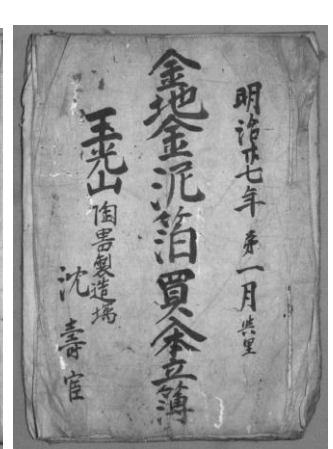 明治廿七年 第一月 吉里
金地金泥箔買入本立簿
玉光山 陶器製造場
沈壽官